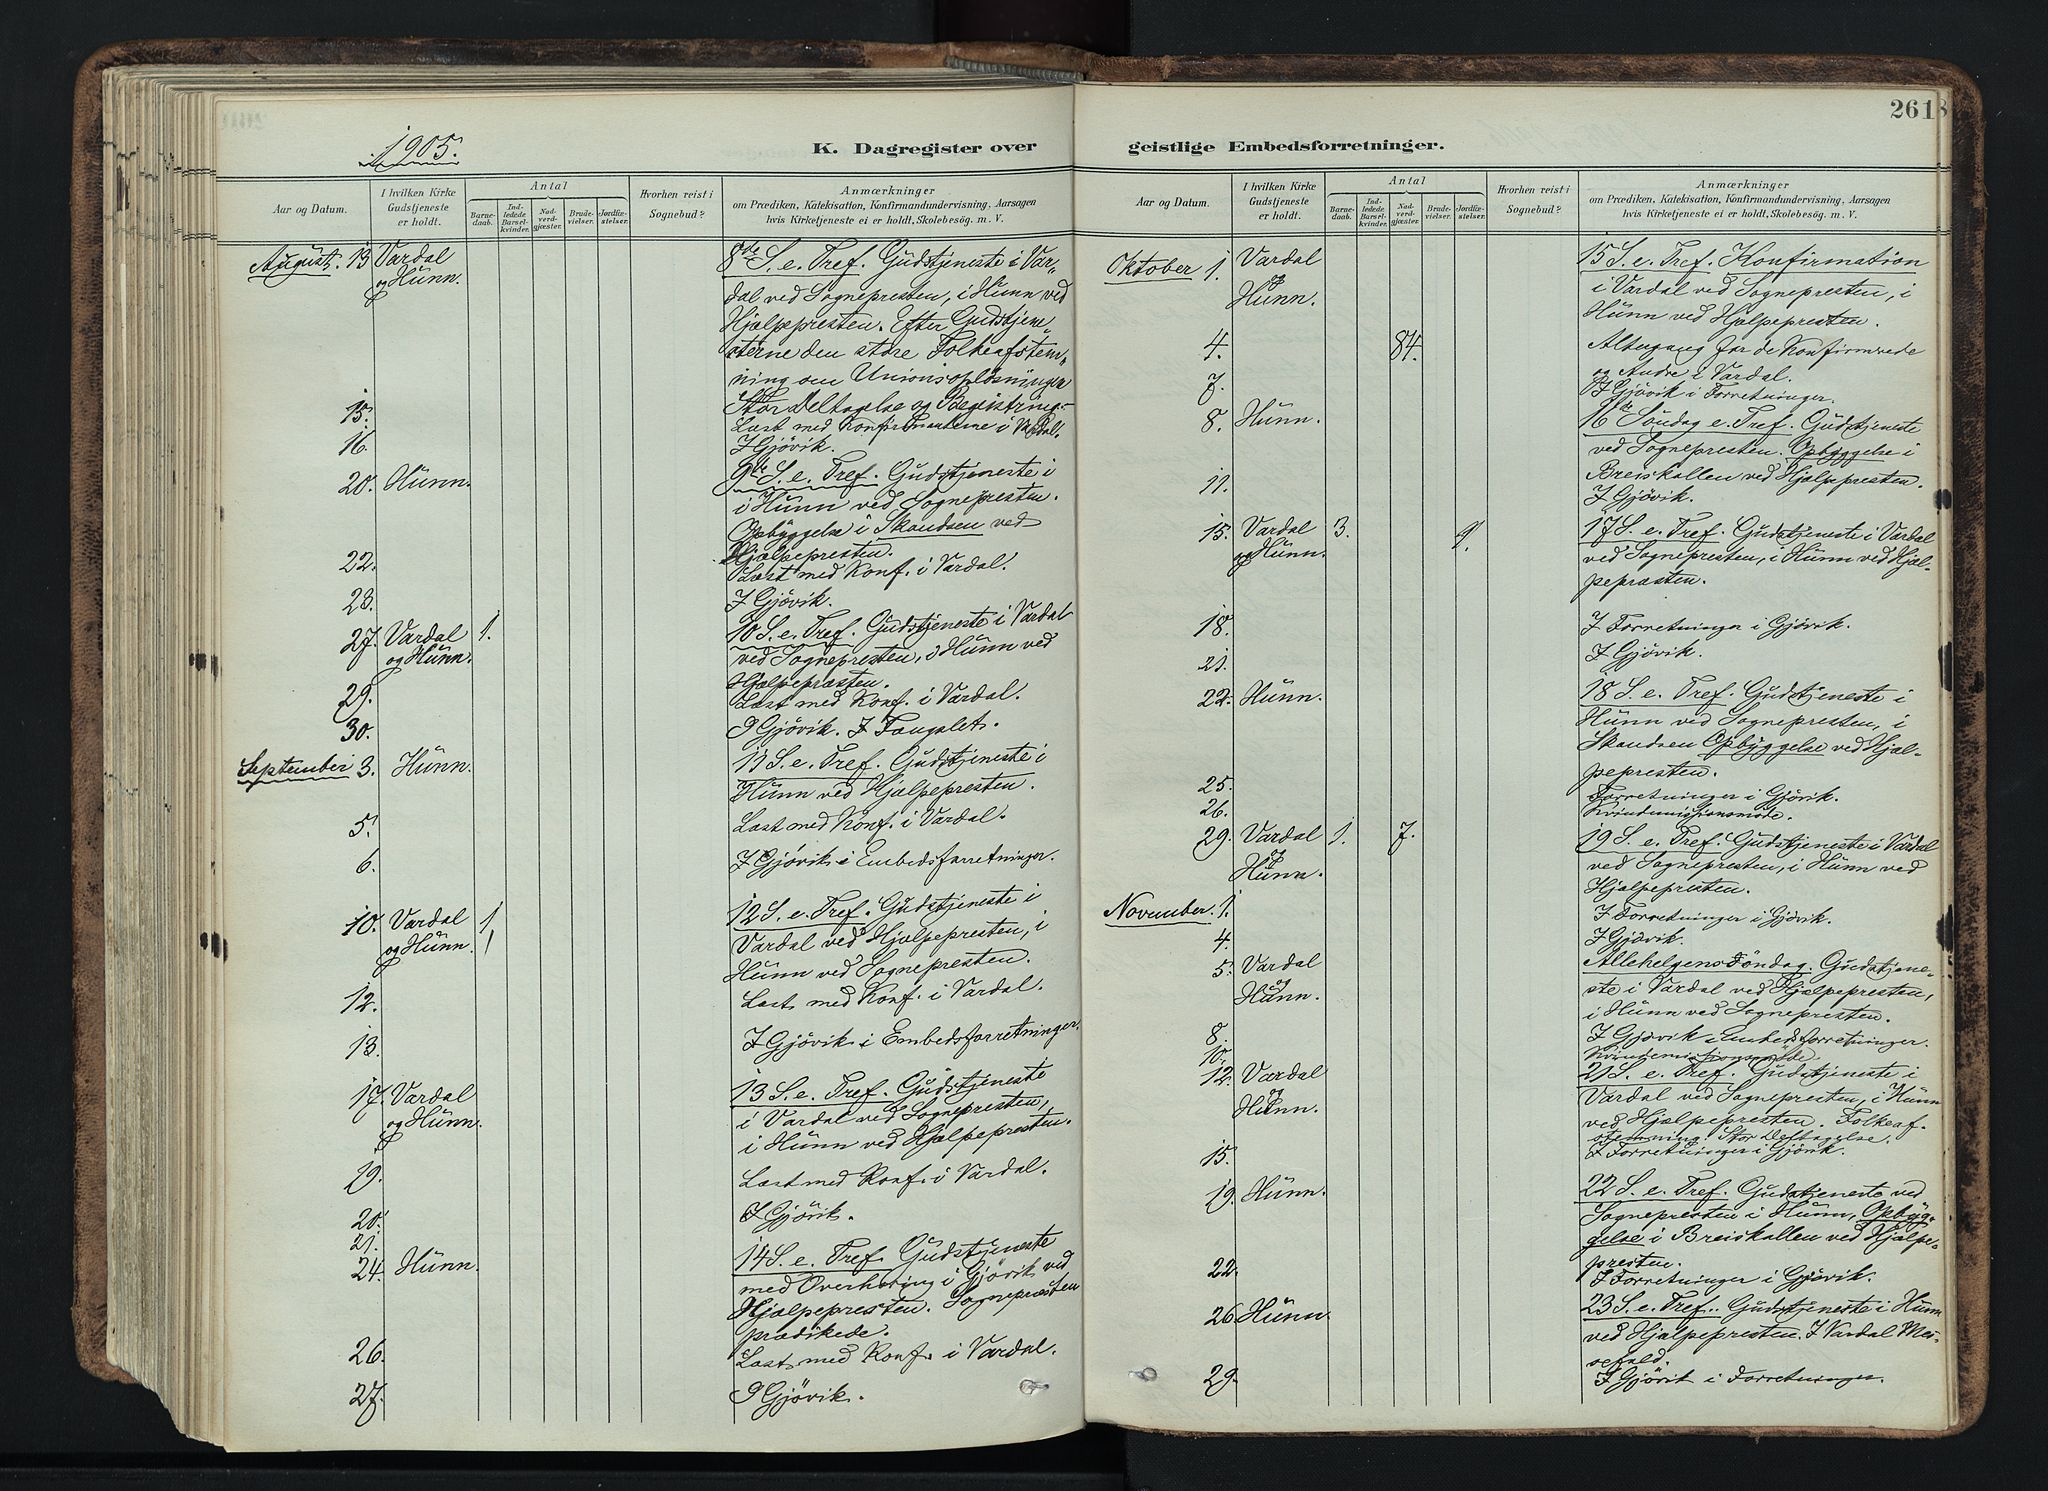 1905.
K. Dagregister over
Aar og Datum.
I hvilken Kirke Gudstjeneste er holdt.
Antal
Barnedaab.
Indledede Barselkvinder.
Nadverdgjæster.
Brudevielser.
Jordfæstelser.
Hvorhen reist i Sognebud?
Anmærkninger
om Prædiken, Katekisation, Konfirmandundervisning, Aarsagen
hvis Kirketjeneste ei er holdt, Skolebesøg. m. V.
August. 13 Vardal 8de S. e. Tref. Gudstjeneste i Var-
og Hunn. dal ved Sognepresten, i Hunn ved
Hjælpepresten. Efter Gudstjene-
sterne den store Folkeafstem-
ning om Unionsopløsningen
Stor Deltagelse og Begeistring.
15. Læst med Konfirmanterne i Vardal.
16. I Gjövik.
20. Hunn. 9de S. e. Tref. Gudstjeneste i
i Hunn ved Sognepresten.
Opbyggelse i Skandsen ved
Hjælpepresten.
22. Læst med Konf. i Vardal.
23. I Gjövik.
27. Vardal 1. 10 S. e. Tref. Gudstjeneste i Vardal
og Hunn. ved Sognepresten, i Hunn ved
Hjælpepræsten.
29. Læst med Konf. i Vardal.
30. I Gjövik. I Fængslet.
September 3. Hunn. 11 S. e. Tref. Gudstjeneste i
Hunn ved Hjælpepresten.
5. Læst med Konf. i Vardal.
6. I Gjövik i Embedsforretninger.
10. Vardal 1 12 S. e. Tref. Gudstjeneste i
og Hunn. 1 Vardal ved Hjælpepresten, i
Hunn ved Sognepresten.
12. Læst med Konf. i Vardal.
13. I Gjövik i Embedsforretninger.
17. Vardal 13 S. e. Tref. Gudstjeneste
og Hunn. i Vardal ved Sognepresten,
i Hunn ved Hjælpepresten.
19. Læst med Konf. i Vardal.
20. I Gjövik.
21.
24. Hunn. 14 S. e. Tref. Gudstjeneste
med Overhøring i Gjövik ved
Hjælpepresten. Sognepræsten
prædikede.
26. Læst med Konf. i Vardal.
27. I Gjövik.
2618
geistlige Embedsforretninger.
Aar og Datum.
I hvilken Kirke Gudstjeneste er holdt.
Antal
Barnedaab.
Indledede Barselkvinder.
Nadverdgjæster.
Brudevielser.
Jordfæstelser.
Hvorhen reist i Sognebud?
Anmærkninger
om Prædiken, Katekisation, Konfirmandundervisning, Aarsagen
hvis Kirketjeneste ei er holdt, Skolebesøg. m. V.
Oktober 1. Vardal 15 S. e. Tref. Konfirmation
og i Vardal ved Sognepresten, i
Hunn. Hunn ved Hjælpepresten.
4. 84. Altergang for de Konfirmerede
og Andre i Vardal.
7. I Gjövik i Forretninger.
8. Hunn. 16de Söndag e. Tref. Gudstjeneste
ved Sognepresten. Opbyggelse i
Breiskallen ved Hjælpepresten.
11. I Gjövik.
15. Vardal 3. 1. 17 S. e. Tref. Gudstjeneste i Vardal
og Hunn. ved Sognepresten, i Hunn ved Hjæl-
pepræsten.
18. I Forretninger i Gjövik.
21. I Gjövik.
22. Hunn. 18 S. e. Tref. Gudstjeneste i
Hunn ved Sognepresten, i
Skandsen Opbyggelse ved Hjæl-
pepresten.
25. Forretninger i Gjövik.
26. Kvindemissionsmöde.
29. Vardal 1. 7. 19 S. e. Tref. Gudstjeneste i Vardal
og ved Sognepresten, i Hunn ved
Hunn. Hjælpepresten.
November. 1. I Forretninger i Gjövik.
4. I Gjövik.
5. Vardal Allehelgens Söndag. Gudstjene-
og ste i Vardal ved Hjælpepresten,
Hunn. i Hunn ved Sognepresten.
8. I Gjövik i Embedsforretninger.
10. Kvindemissionsmöde.
12. Vardal 21 S. e. Tref. Gudstjeneste i
og Vardal ved Sognepresten, i Hunn
Hunn. ved Hjælpepresten. Folkeaf-
stemning. Stor Deltagelse.
15. I Forretninger i Gjövik.
19. Hunn. 22 S. e. Tref. Gudstjeneste ved
Sognepresten i Hunn, Opbyg-
gelse i Breiskallen ved Hjælpe-
presten.
22. I Forretninger i Gjövik.
26. Hunn. 23 S. e. Tref. Gudstjeneste i Hunn
ved Hjælpepresten. I Vardal Mes-
sefald.
29. I Gjövik i Forretninger.